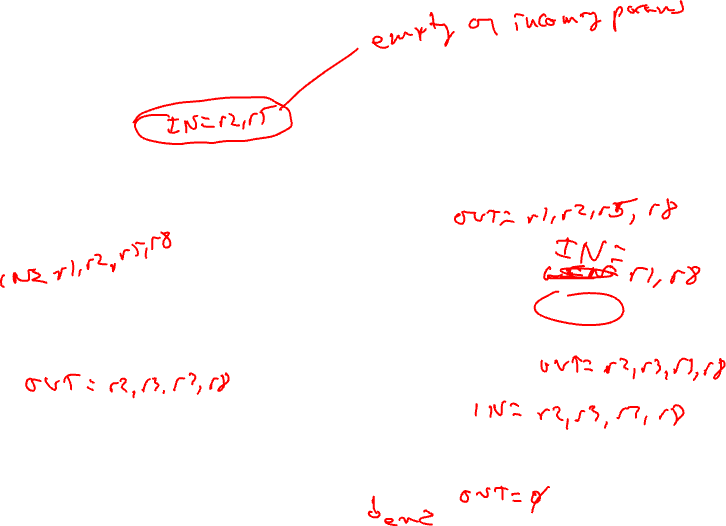 empty or incoming params
IN=r2,r5
OUT= r1,r2,r5, r8
IN=
r1, r8
IN= r1,r2,r5,r8
OUT= r2,r3,r7,r8
OUT= r2,r3,r7,r8
IN= r2,r3,r7,r8
OUT=ø